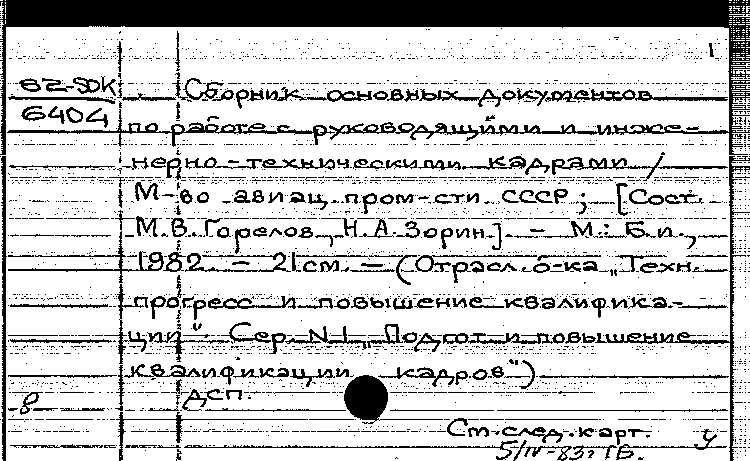 1
62-SDK
6404
Сборник основных документов
по работе с руководящими и инже-
нерно-техническими кадрами /
М-во авиац. пром-сти СССР; [Сост.
М.В. Горелов, Н.А. Зорин]. - М.: Б.и.,
1982. - 21см. - (Отрасл. б-ка „Техн.
прогресс и повышение квалифика-
ции". Сер. N1 „Подгот. и повышение
квалификации кадров")
ДСП.
8
См. след. карт. У
5/IV-83г ГБ.